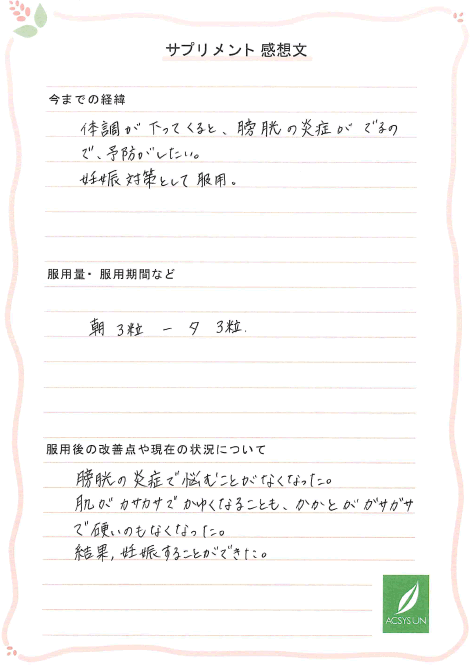 サプリメント 感想文
今までの経緯
体調が下ってくると、膀胱の炎症がでるの
で、予防がしたい。
妊娠対策として服用。
服用量・服用期間など
朝 3粒 ー 夕 3粒.
服用後の改善点や現在の状況について
膀胱の炎症で悩むことがなくなった。
肌がカサカサでかゆくなることも、かかとがガサガサ
で硬いのもなくなった。
結果,妊娠することができた。
ACSYSUN